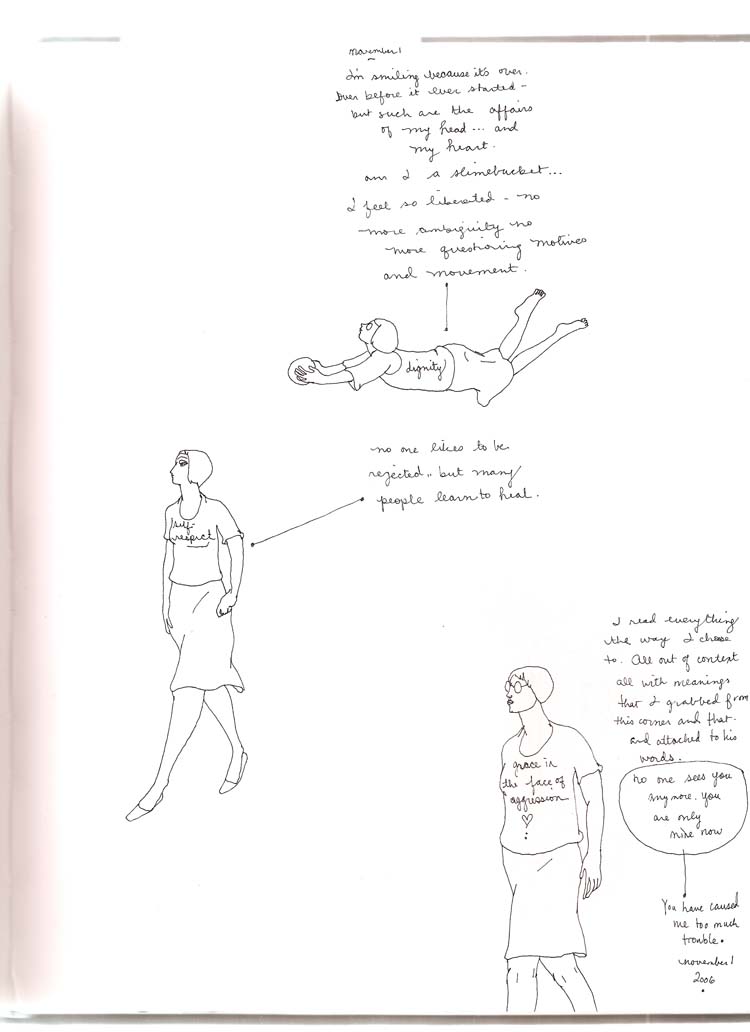 november 1
I'm smiling because it's over.
Over before it ever started -
but such are the affairs
of my head... and
my heart.
am I a slimebucket...
I feel so liberated - no
more ambiguity no
more questioning motives
and movement.
dignity
no one likes to be
rejected.. but many
people learn to heal.
self-
respect
I read everything
the way I chose
to. All out of context
all with meanings
that I grabbed from
this corner and that.
and attached to his
words.
grace in
the face of
aggression
no one sees you
anymore. You
are only
mine now
You have caused
me too much
trouble.
november 1
2006